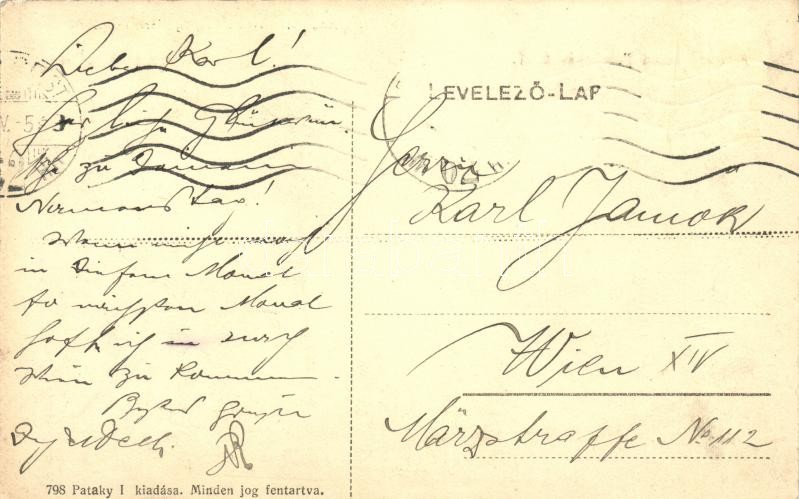 Lieber Karl!
Herzliche Glückwün
zu Deinem
Namenstag!
Wenn nicht noch
in diesem Monat
so nächsten Monat
hoffe ich in
Wien zu kommen.
Beste Grüße
LEVELEZŐ-LAP
Herrn
Karl Jamök
Wien XIV
Märzstraße No 112
798 Pataky I kiadása. Minden jog fentartva.